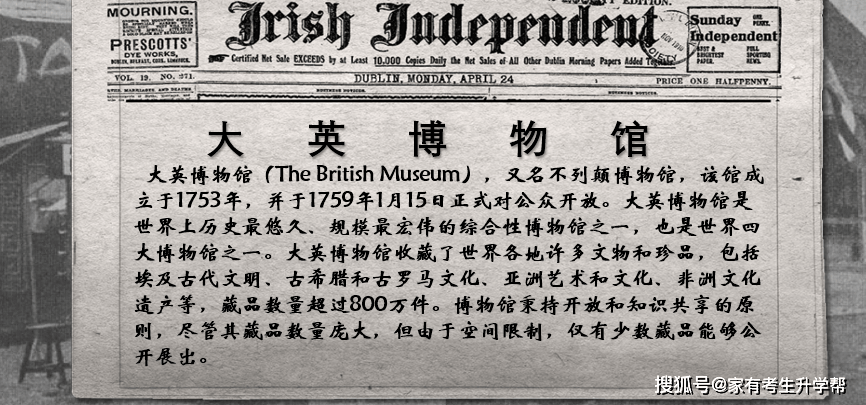 MOURNING.
PRESCOTTS'
DYE WORKS,
Irish Independent
Sunday
Independent
Certified Net Sale EXCEEDS by at Least 10,000 Copies Daily the Net Sales of All Other Dublin Morning Papers Added
VOL. 19. NO. 271.
DUBLIN, MONDAY, APRIL 24
PRICE ONE HALFPENNY.
大英博物馆
大英博物馆（The British Museum），又名不列颠博物馆，该馆成
立于1753年，并于1759年1月15日正式对公众开放。大英博物馆是
世界上历史最悠久、规模最宏伟的综合性博物馆之一，也是世界四
大博物馆之一。大英博物馆收藏了世界各地许多文物和珍品，包括
埃及古代文明、古希腊和古罗马文化、亚洲艺术和文化、非洲文化
遗产等，藏品数量超过800万件。博物馆秉持开放和知识共享的原
则，尽管其藏品数量庞大，但由于空间限制，仅有少数藏品能够公
开展出。
搜狐号@家有考生升学帮